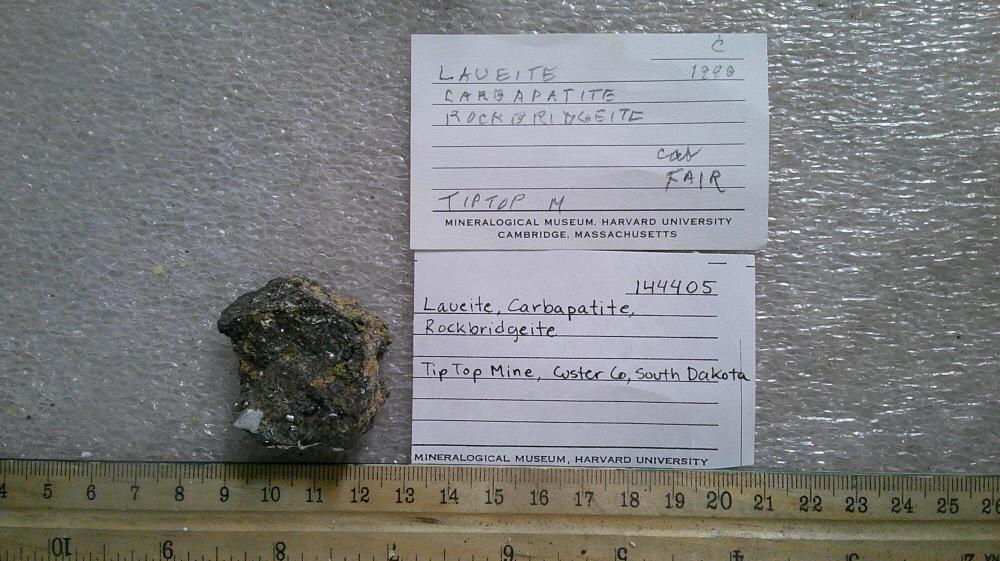 C
LAUEITE 1980
CARBAPATITE
ROCKBRIDGEITE
FAIR
TIPTOP M
MINERALOGICAL MUSEUM, HARVARD UNIVERSITY
CAMBRIDGE, MASSACHUSETTS
144405
Laueite, Carbapatite,
Rockbridgeite
Tip Top Mine, Custer Co, South Dakota
MINERALOGICAL MUSEUM, HARVARD UNIVERSITY
4 5 6 7 8 9 10 11 12 13 14 15 16 17 18 19 20 21 22 23 24 25 26
10 9 8 6 5 4 3 2